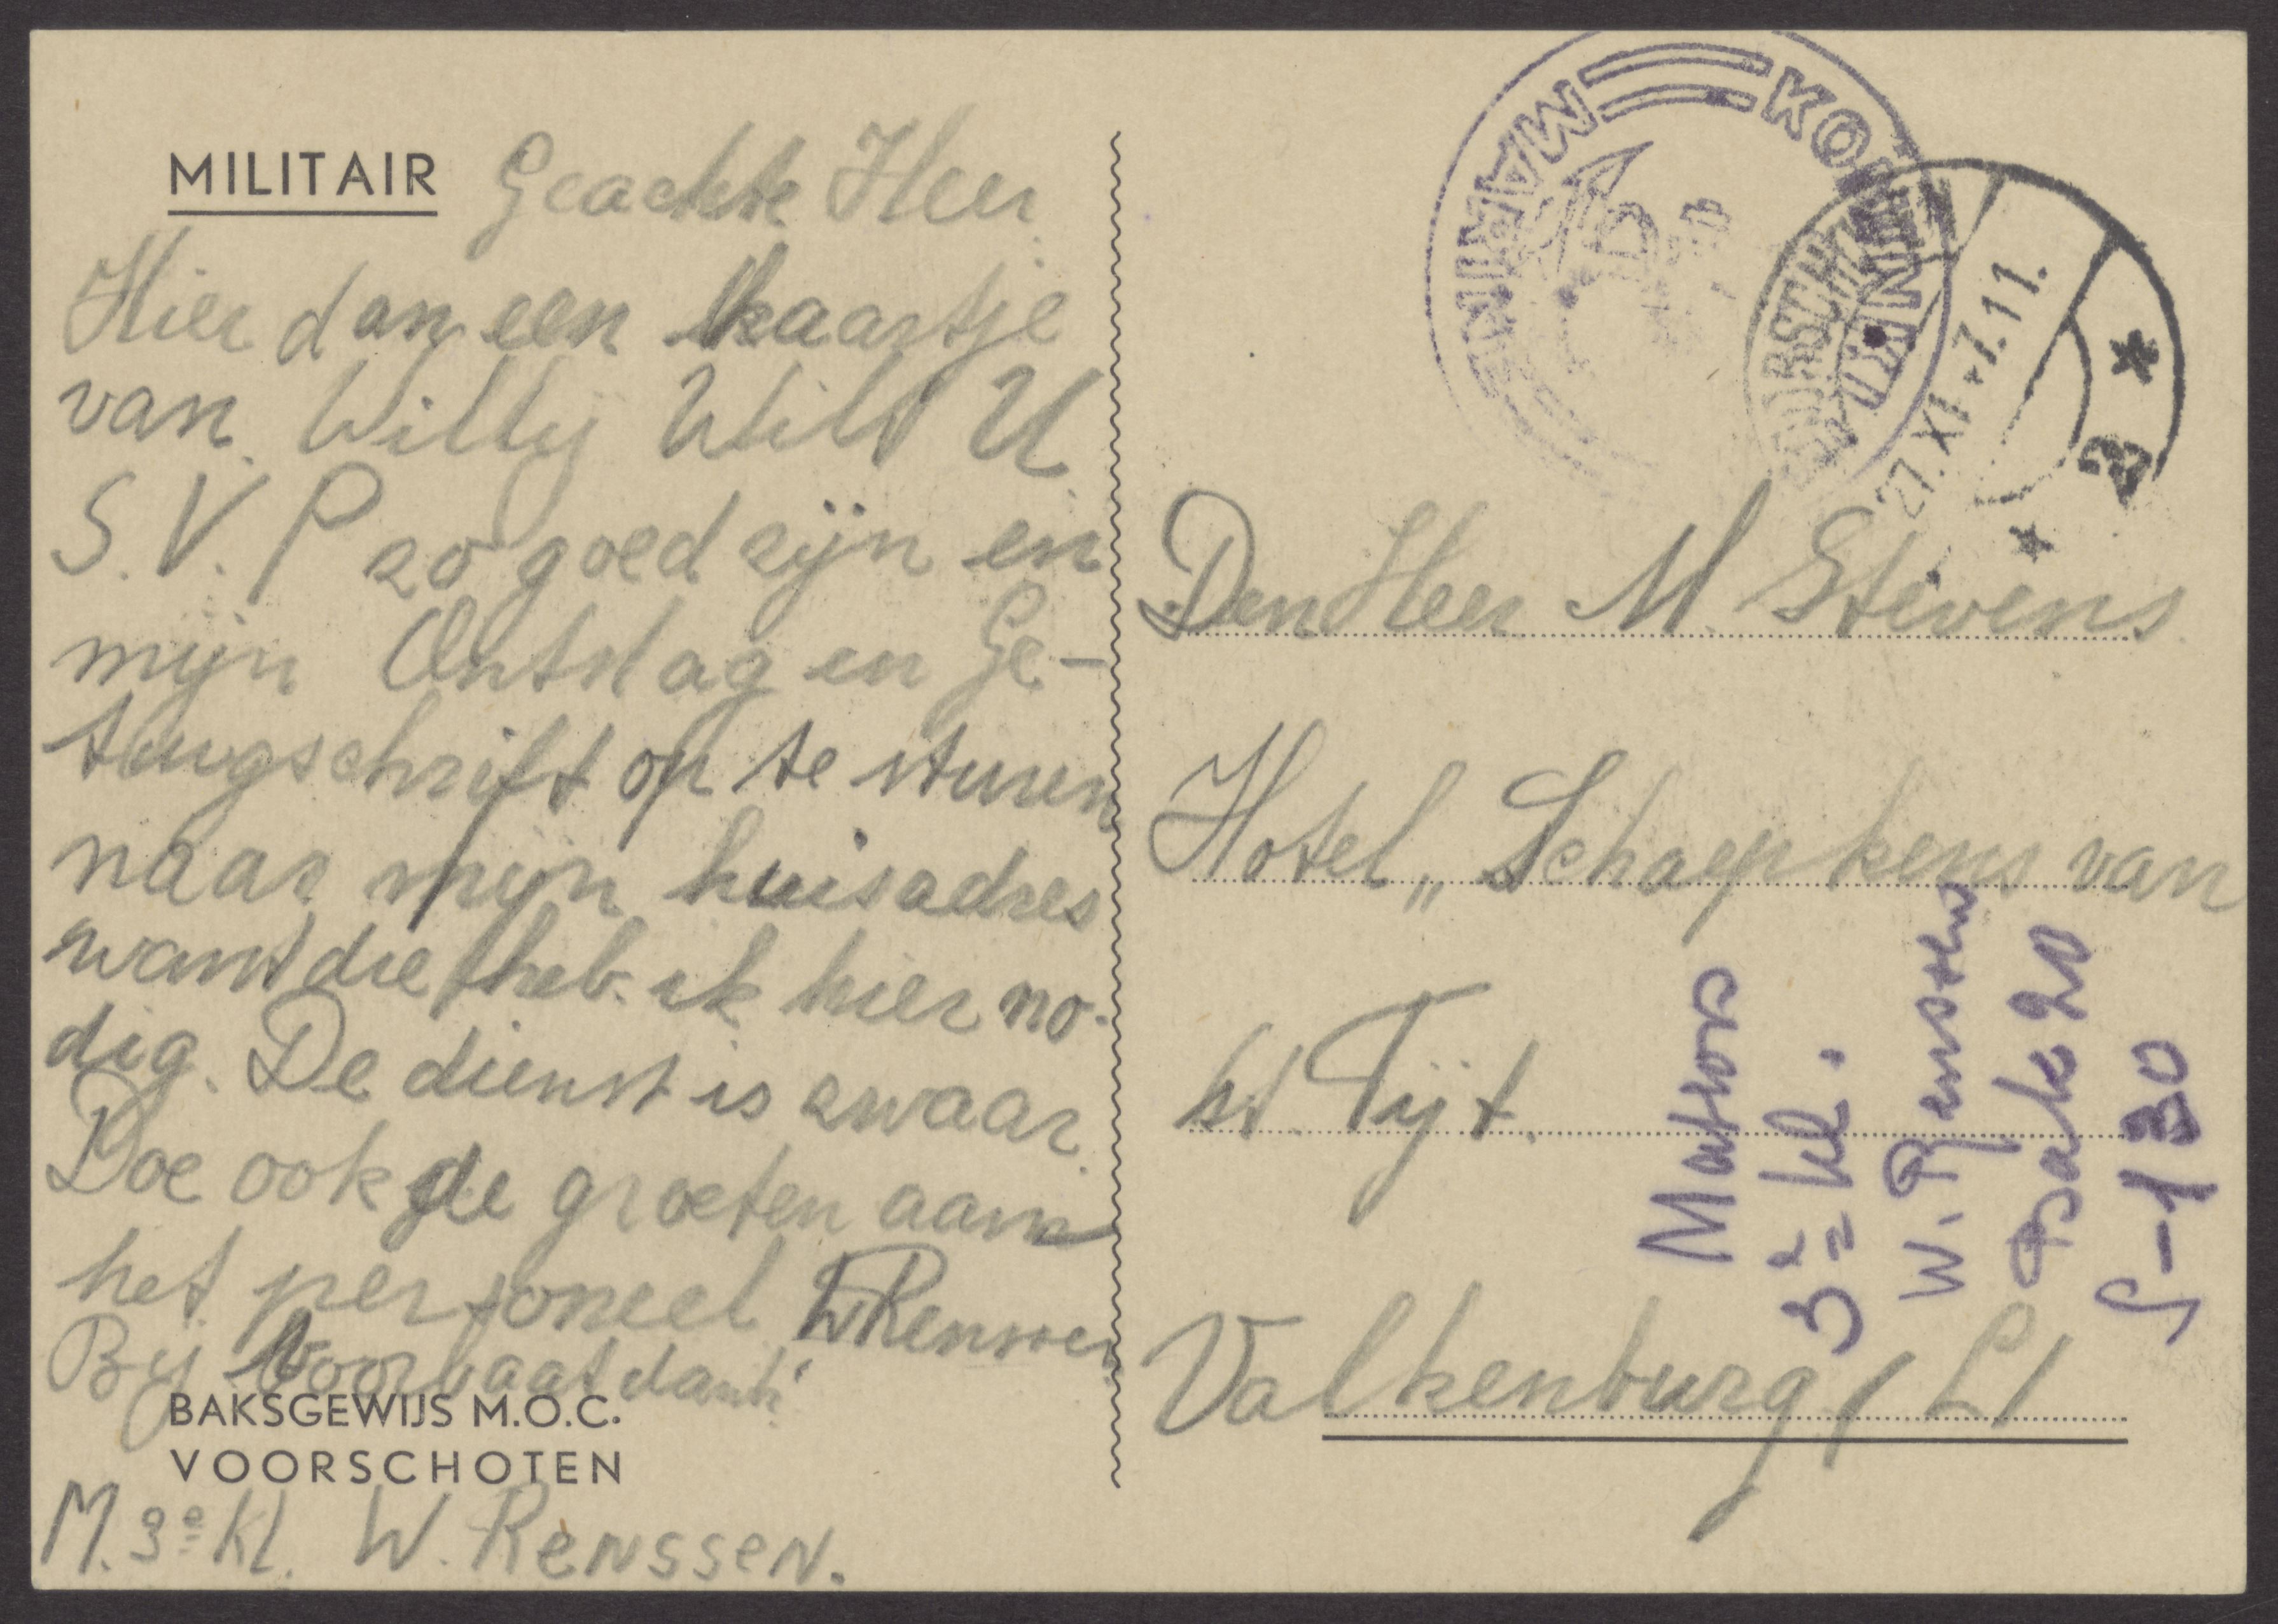 MILITAIR Geachte Heer
Hier dan een kaartje
van Willy Wilt U
S.V.P zo goed zijn en
mijn Ontslag en Ge-
tuigschrift op te sturen
naar mijn huisadres
want die heb ik hier no-
dig. De dienst is zwaar.
Doe ook de groeten aan
het personeel WRenssen
Bij Voorbaat dank
BAKSGEWIJS M.O.C.
VOORSCHOTEN
M. 3e Kl. W. Renssen.
KONINKL MARINE
VOORSCHOTEN
27.XI.47.11.
3
Den Heer M. Stevens
Hotel „Schaepkens van
St. Fijt.
Valkenburg (L)
Matroos
3e kl.
W. Renssen
Bak 20
S-130